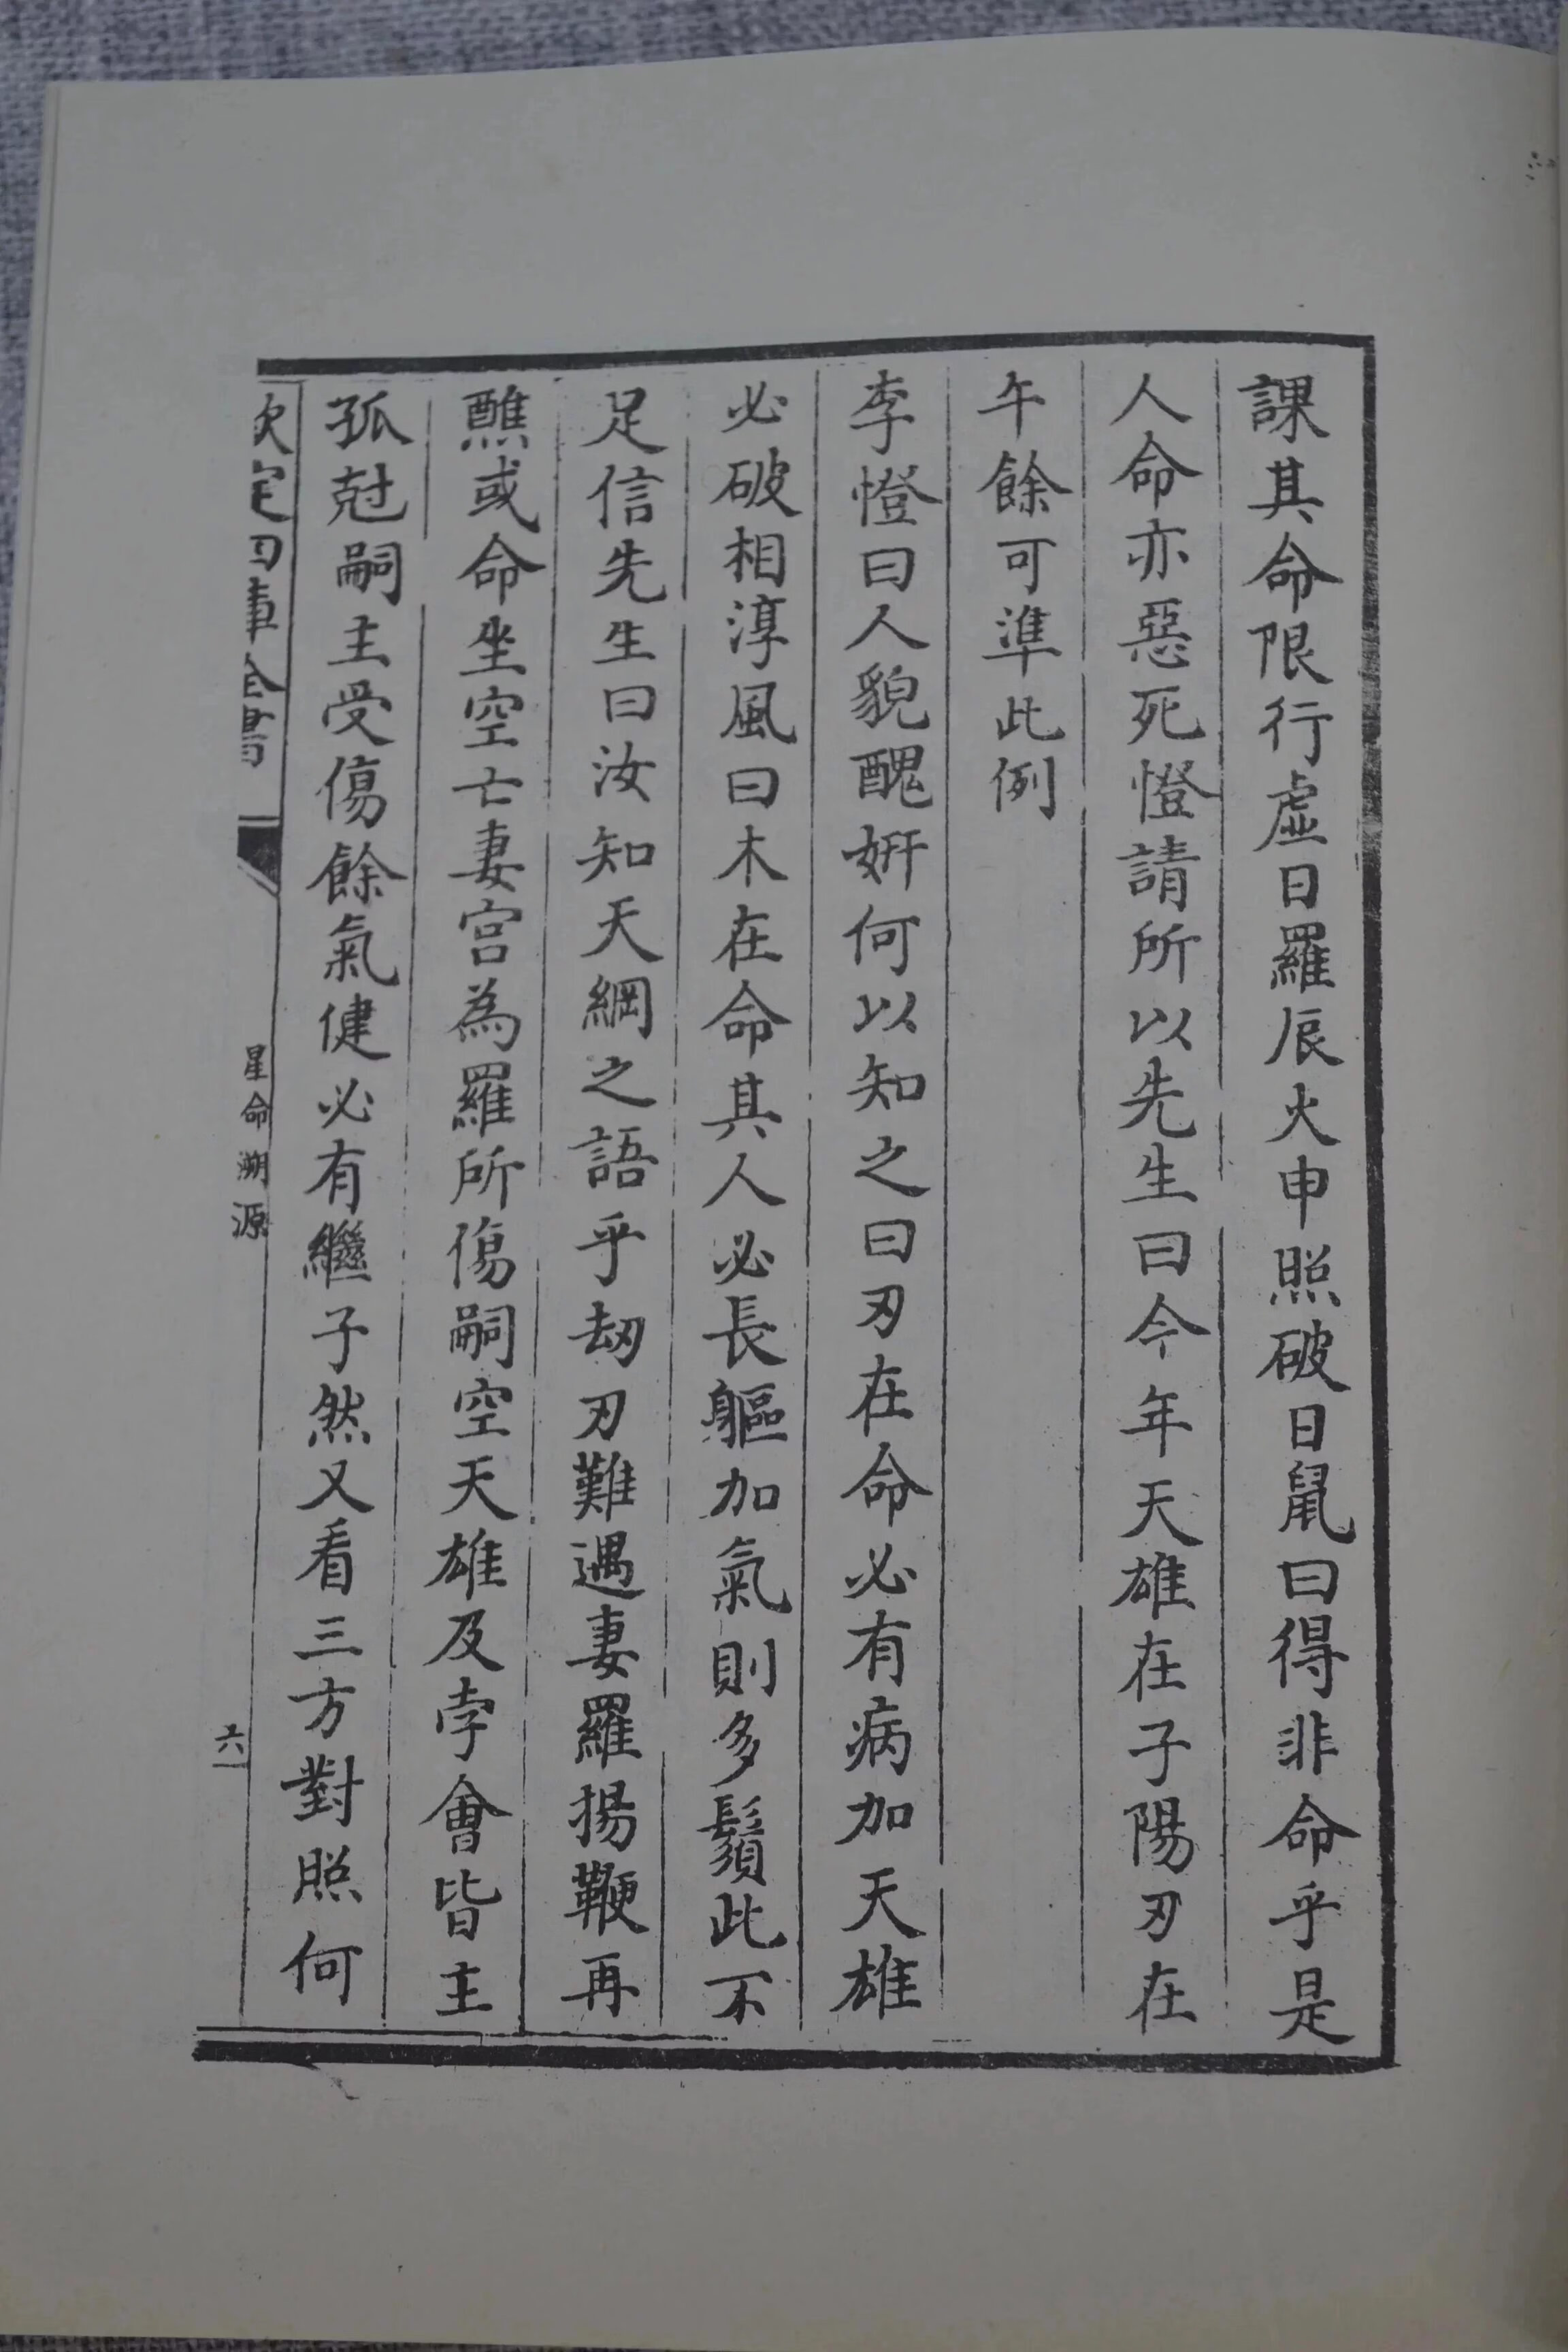 課其命限行虛日羅辰火申照破日鼠曰得非命乎是
人命亦惡死憕請所以先生曰今年天雄在子陽刃在
午餘可準此例
李憕曰人貌醜妍何以知之曰刃在命必有病加天雄
必破相淳風曰木在命其人必長軀加氣則多鬚此不
足信先生曰汝知天綱之語乎劫刃難遇妻羅揚鞭再
醮或命坐空亡妻宮為羅所傷嗣空天雄及孛會皆主
孤尅嗣主受傷餘氣健必有繼子然又看三方對照何
欽定四庫全書
星命溯源
六